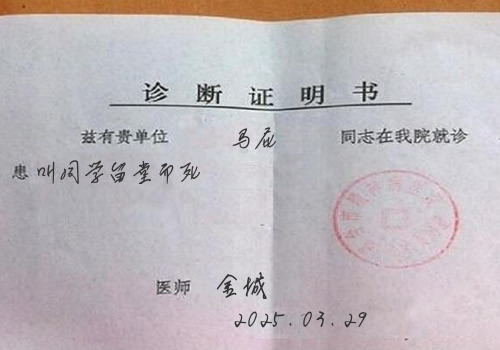 诊断证明书
兹有贵单位 马屁 同志在我院就诊
患 叫同学留堂而死
医师 金城
2025.03.29